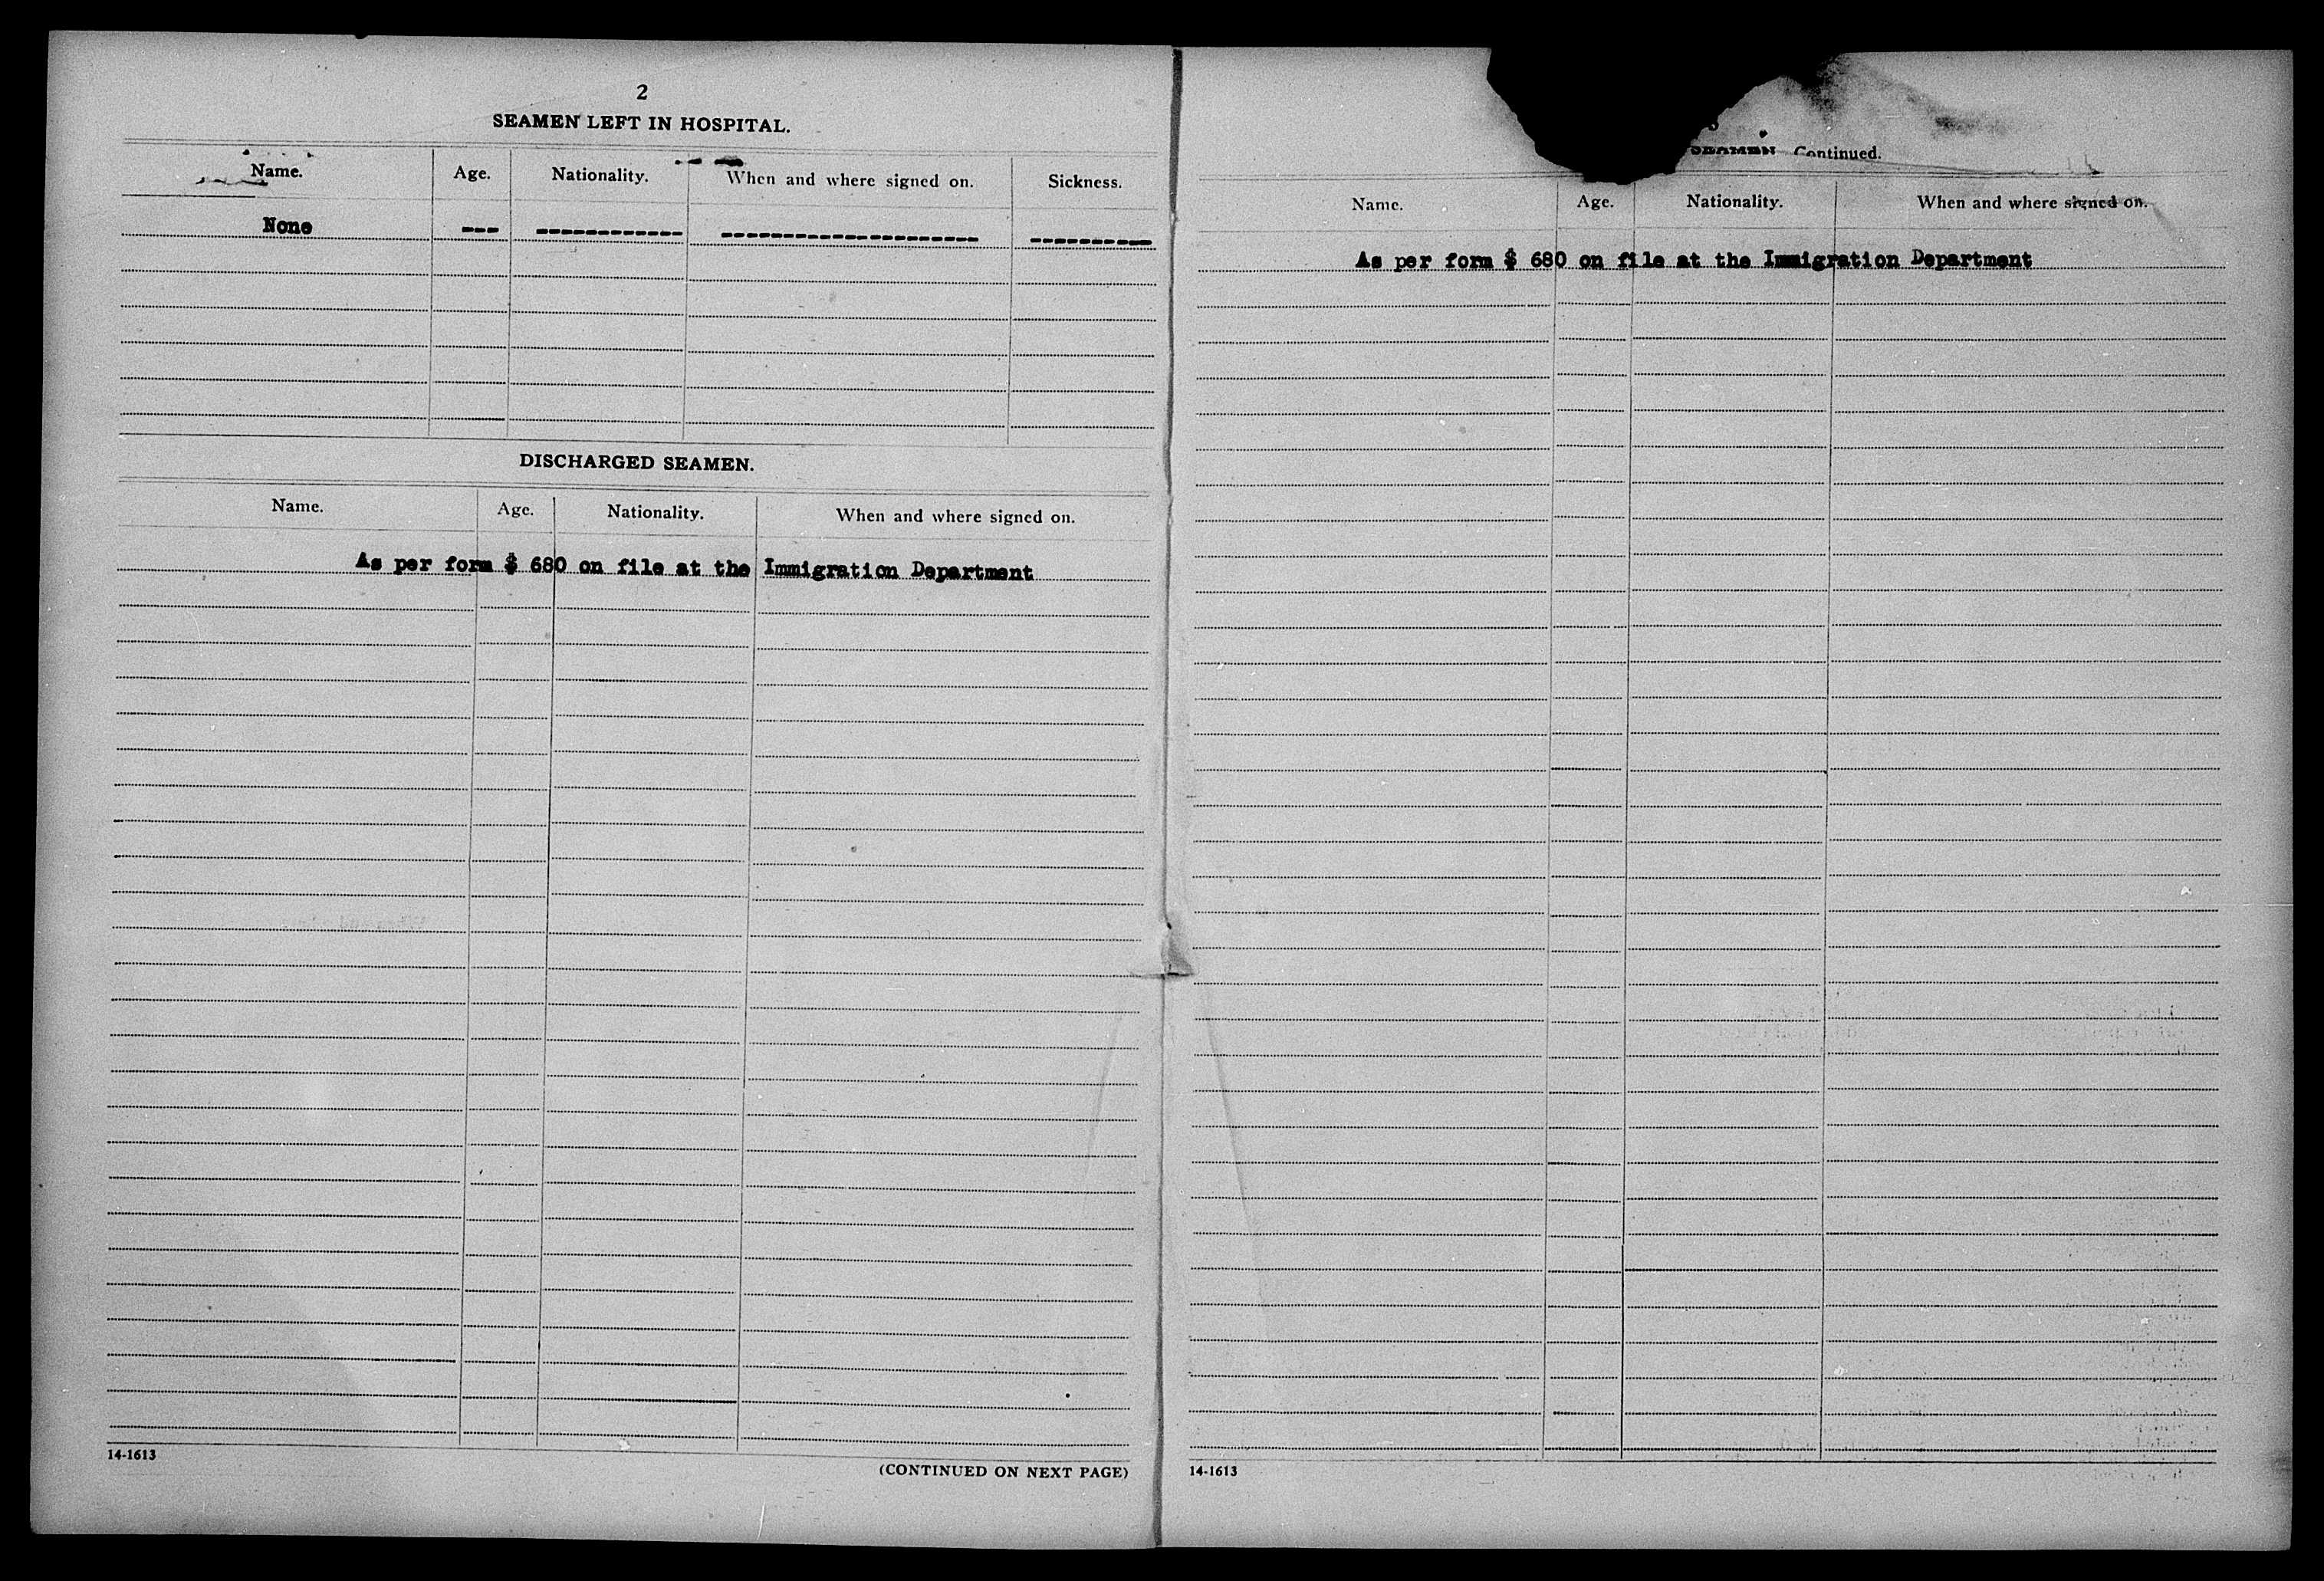 2
SEAMEN LEFT IN HOSPITAL.
Name. Age. Nationality. When and where signed on. Sickness.
None --- ------------ --------------------- ----------
DISCHARGED SEAMEN.
Name. Age. Nationality. When and where signed on.
As per form $ 680 on file at the Immigration Department
14-1613
(CONTINUED ON NEXT PAGE)
SEAMEN Continued.
Name. Age. Nationality. When and where signed on.
As per form $ 680 on file at the Immigration Department
14-1613